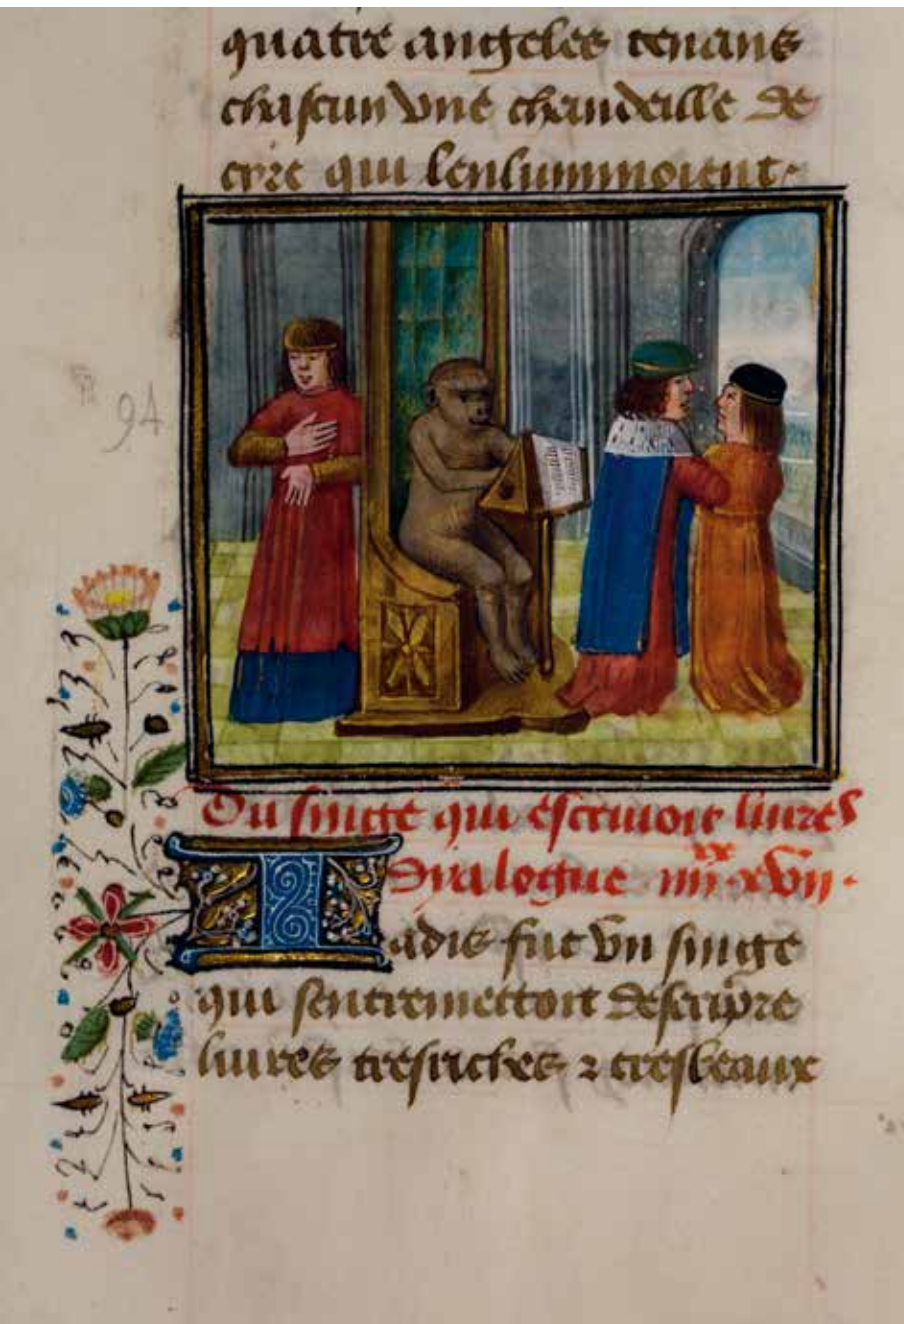 quatre angeles tenans
chascun vne chandeille de
cyre qui lenlumminoient.
94
Du singe qui escriuoit liures
Dyalogue iiii xx xvii.
Iadis fut vn singe
qui sentremettoit descripre
liures tresriches & tresbeaux